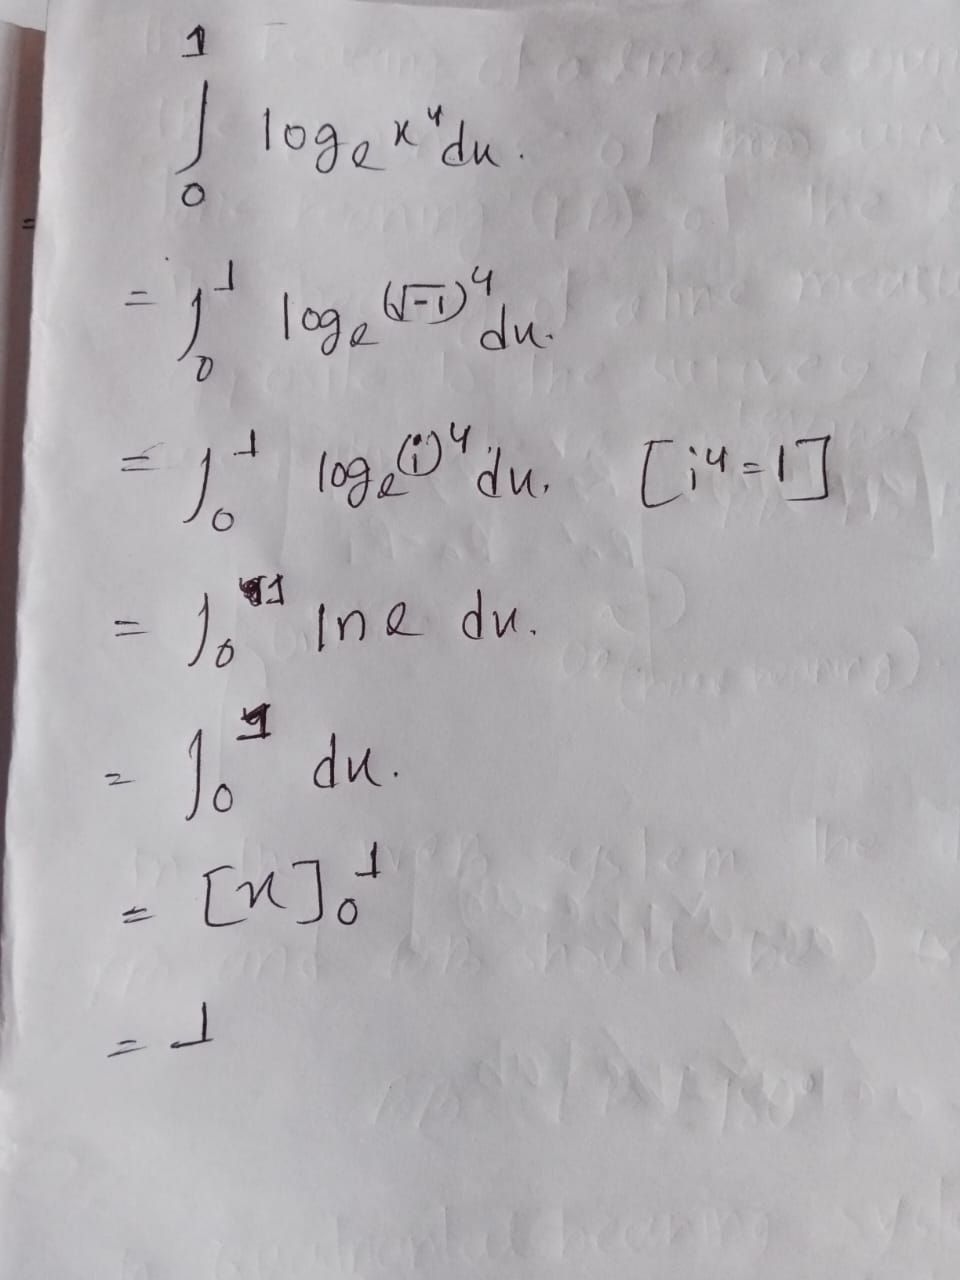 ∫₀¹ logₑ x⁴ dx.
= ∫₀¹ logₑ (√-1)⁴ dx.
= ∫₀¹ logₑ (i)⁴ dx. [i⁴=1]
= ∫₀¹ ln e dx.
= ∫₀¹ dx.
= [x]₀¹
= 1